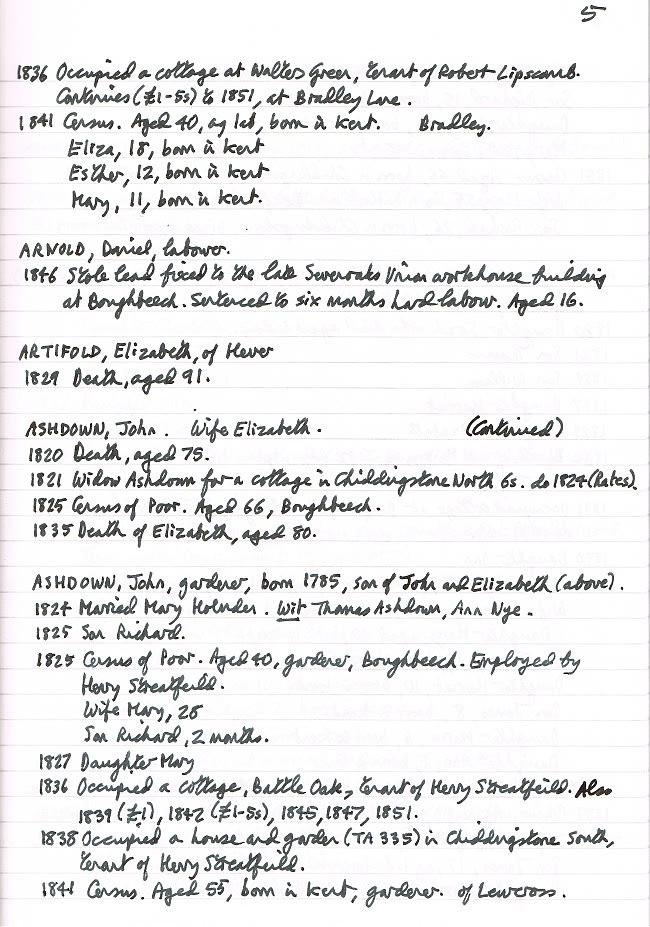 5
1836 Occupied a cottage at Walters Green, tenant of Robert Lipscomb.
Continues (£1-5s) to 1851, at Bradley Lane.
1841 Census. Aged 40, ag lab, born in Kent. Bradley.
Eliza, 18, born in Kent
Esther, 12, born in Kent
Mary, 11, born in Kent.
ARNOLD, Daniel, labourer.
1846 Stole lead fixed to the late Sevenoaks Union workhouse building
at Boughbeech. Sentenced to six months hard labour. Aged 16.
ARTIFOLD, Elizabeth, of Hever
1829 Death, aged 91.
ASHDOWN, John. Wife Elizabeth. (Continued)
1820 Death, aged 75.
1821 Widow Ashdown for a cottage in Chiddingstone North 6s. do 1824 (Rates).
1825 Census of Poor. Aged 66, Boughbeech.
1835 Death of Elizabeth, aged 80.
ASHDOWN, John, gardener, born 1785, son of John and Elizabeth (above).
1824 Married Mary Holmden. Wit Thomas Ashdown, Ann Nye.
1825 Son Richard.
1825 Census of Poor. Aged 40, gardener, Boughbeech. Employed by
Henry Streatfeild.
Wife Mary, 28
Son Richard, 2 months.
1827 Daughter Mary
1836 Occupied a cottage, Battle Oak, tenant of Henry Streatfeild. Also
1839 (£1), 1842 (£1-5s), 1845, 1847, 1851.
1838 Occupied a house and garden (TA 335) in Chiddingstone South,
tenant of Henry Streatfeild.
1841 Census. Aged 55, born in Kent, gardener. of Lewcross.